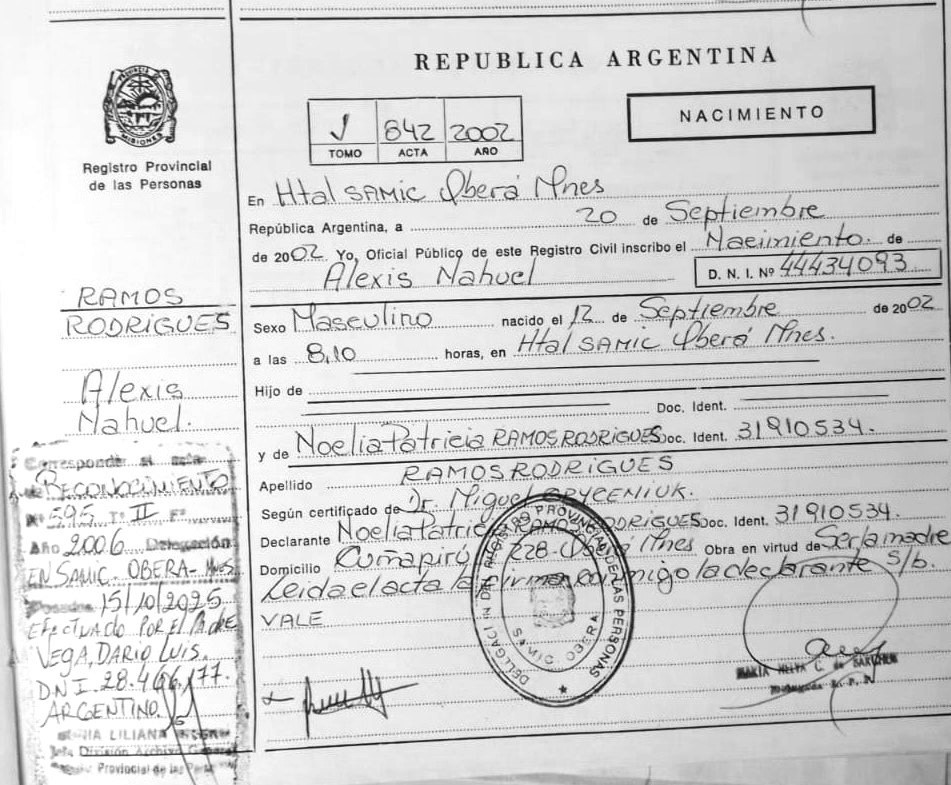 REPUBLICA ARGENTINA
PROVINCIA DE MISIONES
Registro Provincial
de las Personas
V 842 2002
TOMO ACTA AÑO
NACIMIENTO
En Htal SAMIC Oberá Mnes
República Argentina, a 20 de Septiembre
de 2002 Yo, Oficial Público de este Registro Civil inscribo el Nacimiento. de
Alexis Nahuel D. N. I. Nº 44434093
RAMOS
RODRIGUES
Alexis
Nahuel.
Sexo Masculino nacido el 12 de Septiembre de 2002
a las 8,10 horas, en Htal SAMIC Oberá Mnes.
Hijo de
Doc. Ident.
y de Noelia Patricia RAMOS RODRIGUES Doc. Ident. 31910534.
Apellido RAMOS RODRIGUES
Según certificado de Dr. Miguel
Declarante Noelia Patricia RAMOS RODRIGUES Doc. Ident. 31910534.
Domicilio Cuñapirú 228- Oberá Mnes Obra en virtud de Ser la madre
Leida el acta la firma conmigo la declarante s/b.
VALE
Corresponde al acta
RECONOCIMIENTO
Nº 595 Tº II Fº
Año 2006 Delegación
EN SAMIC. OBERA- Mnes
Posadas 15/10/2025
EFECTUADO POR EL PADRE
VEGA, DARIO LUIS.
D.N.I. 28.466.177.
ARGENTINO.
LILIANA
Jefa División Archivo General
Registro Provincial de las Personas
DELEGACION DEL REGISTRO PROVINCIAL DE LAS PERSONAS
SAMIC OBERA
MARIA C. de